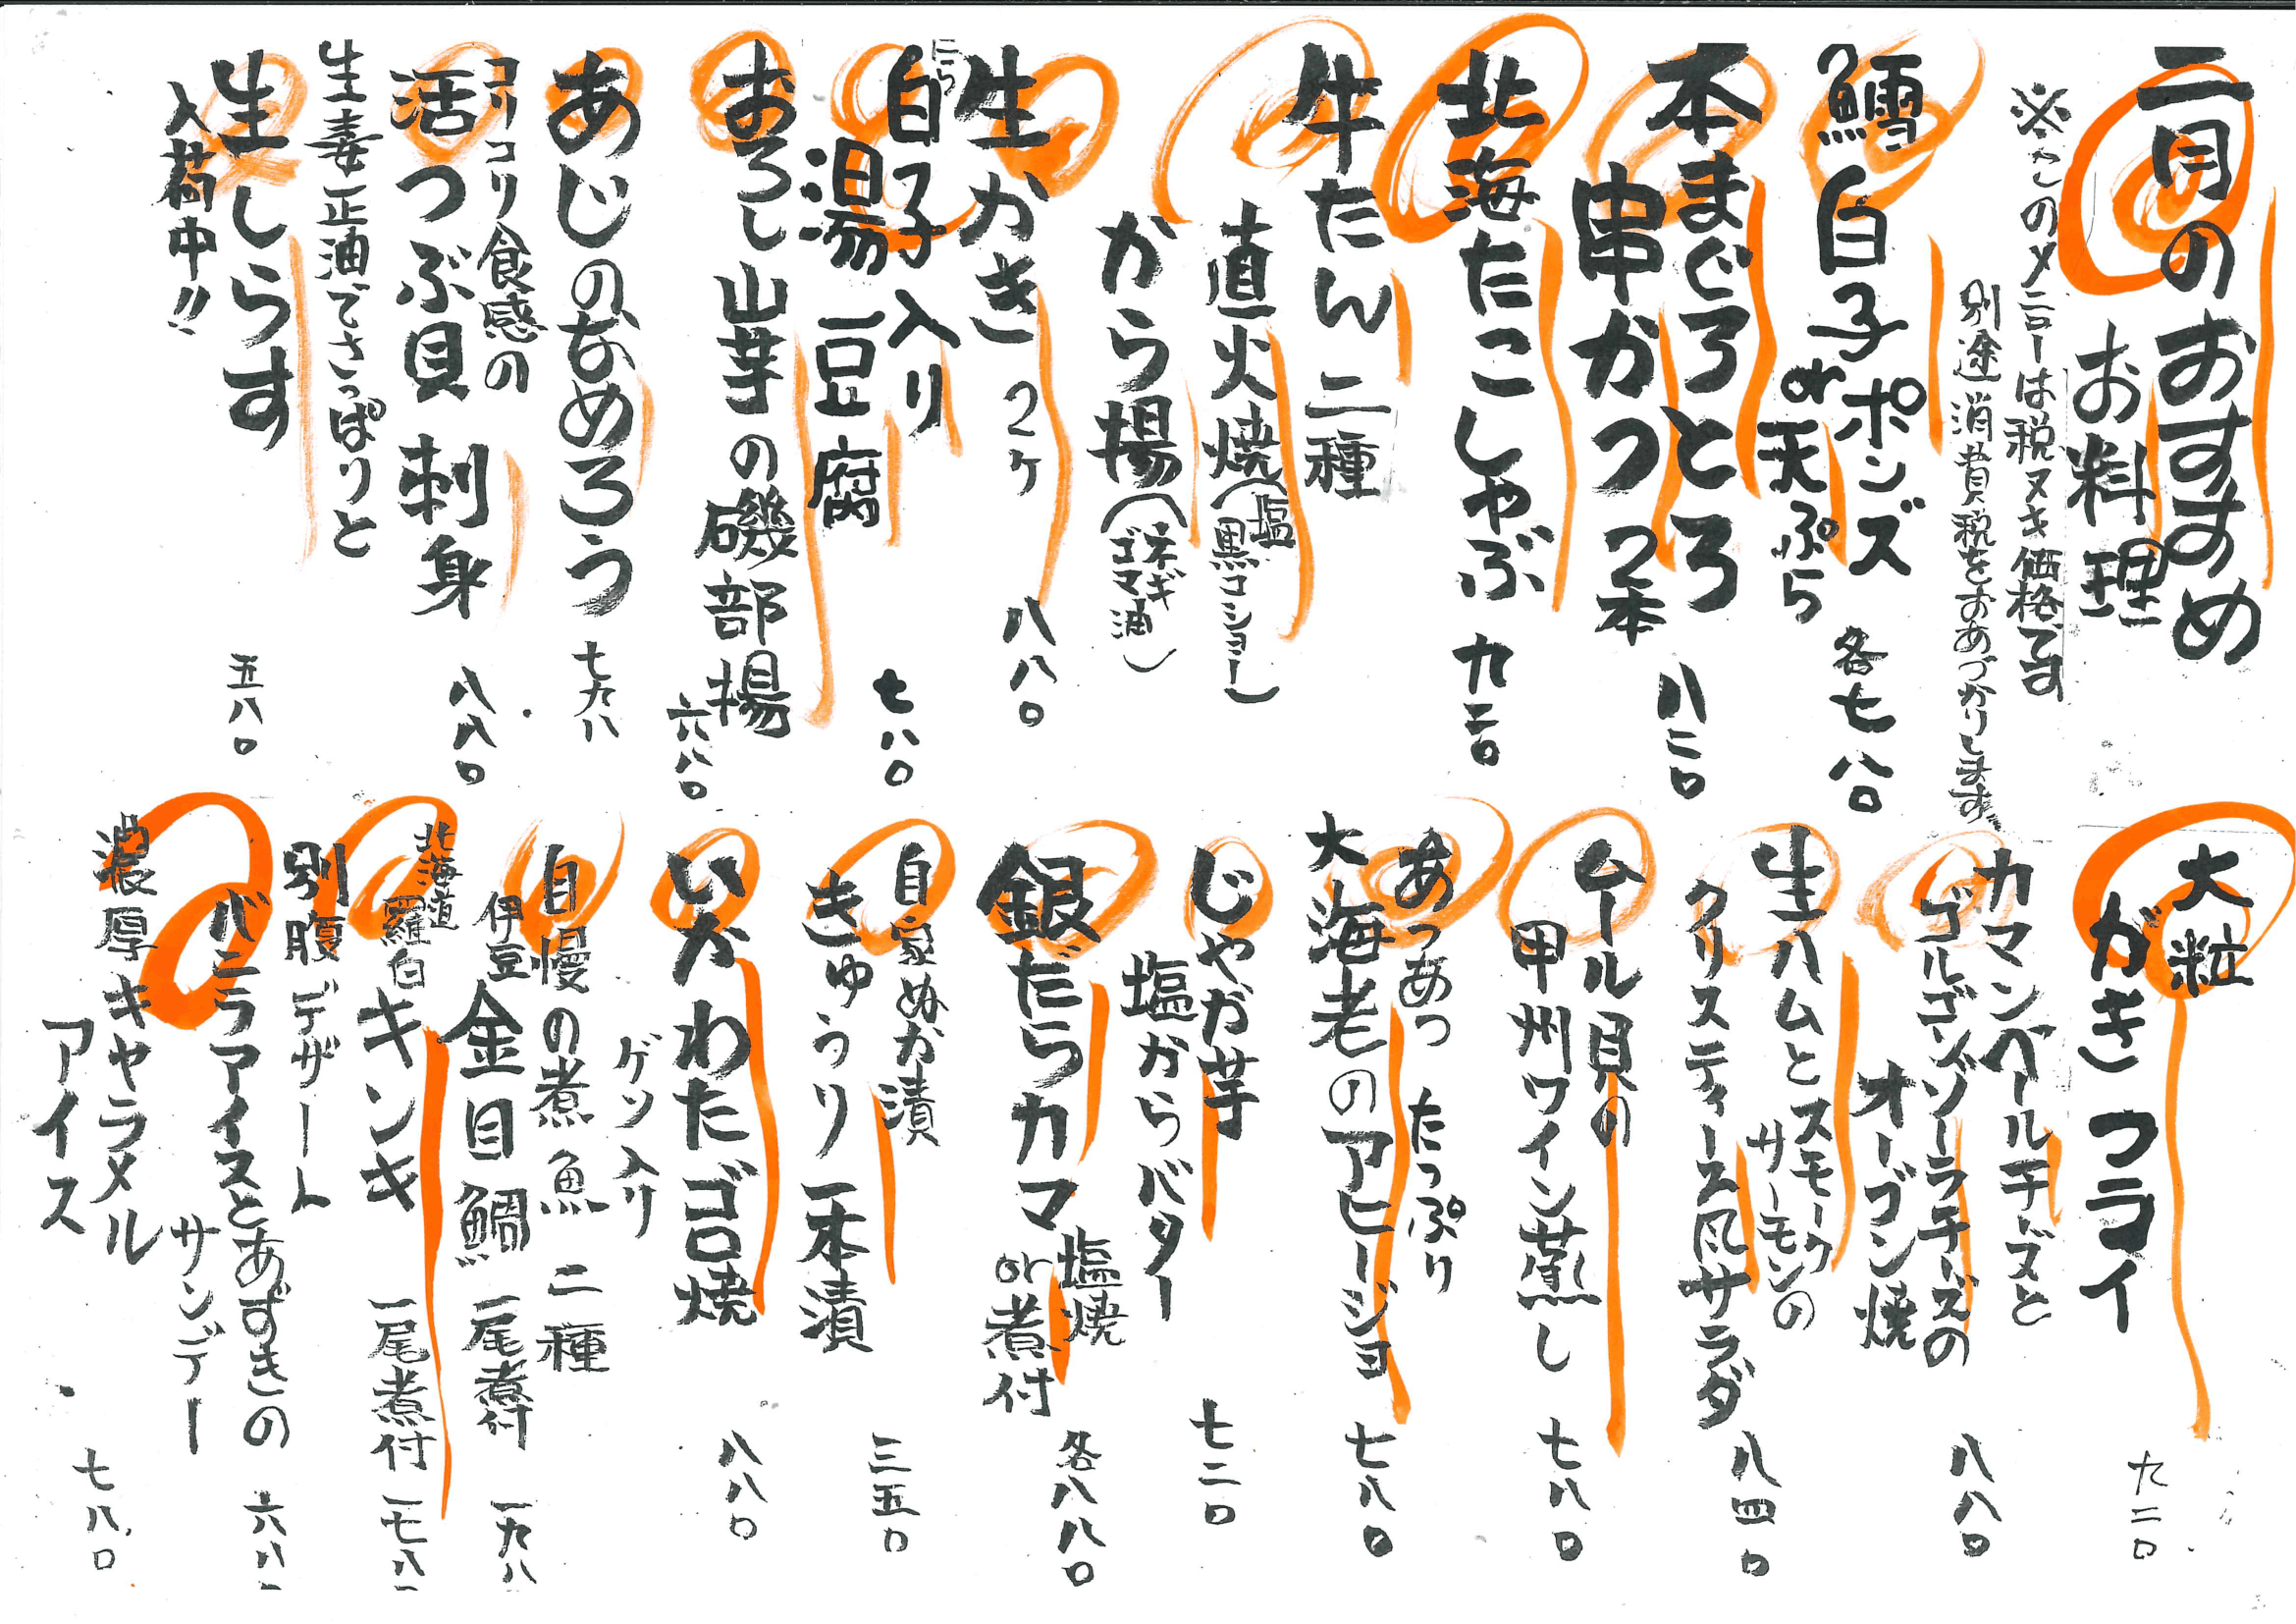 二月のおすすめ
お料理
※このメニューは税ヌキ価格です
別途消費税をおあづかりします
鱈白子ポンズ
or天ぷら
各七八〇
本まぐろとろ
串かつ2本
八二〇
北海たこしゃぶ 九二〇
牛たん二種
直火焼(塩黒コショー)
から揚(ネギゴマ油)
生かき 2ヶ 八八〇
白子入り
湯豆腐
七八〇
おろし山芋の磯部揚
六八〇
あじのなめろう 七九八
コリコリ食感の
活つぶ貝刺身 八八〇
生姜正油でさっぱりと
生しらす 五八〇
入荷中!!
大粒
がきフライ
九二〇
カマンベールチーズと
ゴルゴンゾーラチーズの
オーブン焼
八八〇
生ハムとスモーク
サーモンの
クリスティース風サラダ
八四〇
ムール貝の
甲州ワイン蒸し
七八〇
あつあつ たっぷり
大海老のアヒージョ 七八〇
じゃが芋
塩からバター
七二〇
銀だらカマ塩焼
or煮付
各八八〇
自家ぬか漬
きゅうり一本漬
三五〇
いかわたゴロ焼
ゲソ入り
八八〇
自慢の煮魚 二種
伊豆 金目鯛 一尾煮付
北海道
羅臼 キンキ 一尾煮付
別腹デザート
バニラアイスとあずきの
サンデー
濃厚キャラメル
アイス
七八〇